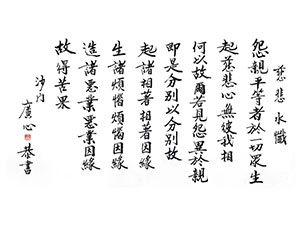 慈悲水懺
怨親平等者於一切眾生
起慈悲心無彼我相
何以故爾若見怨異於親
即是分別以分別故
起諸相著相著因緣
生諸煩惱煩惱因緣
造諸惡業惡業因緣
故得苦果
沙門
廣心
恭書